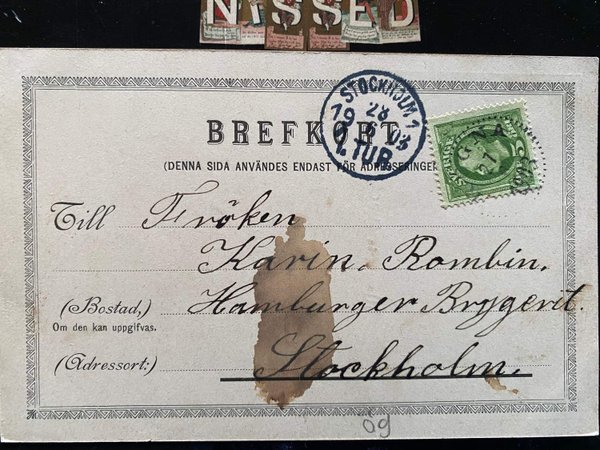 NISSED
BREFKORT
(DENNA SIDA ANVÄNDES ENDAST FÖR ADRESSERINGEN
STOCKHOLM 1
28
6 03
1. TUR.
Till Fröken
Karin Rombin.
(Bostad,) Hamburger Bryggeri.
Om den kan uppgifvas.
(Adressort:) Stockholm.